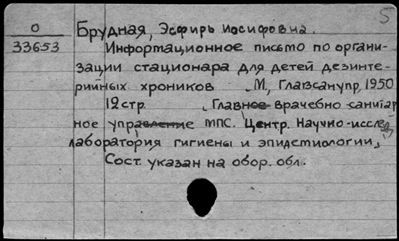 5
О
33653
Брудная, Эсфирь Иосифовна.
Информационное письмо по органи-
зации стационара для детей дизенте-
рийных хроников. М, Главсанупр, 1950
12 стр. Главное врачебно-санитар
ное управление МПС. Центр. Научно-исслед
лаборатория гигиены и эпидемиологии,
Сост. указан на обор. обл.